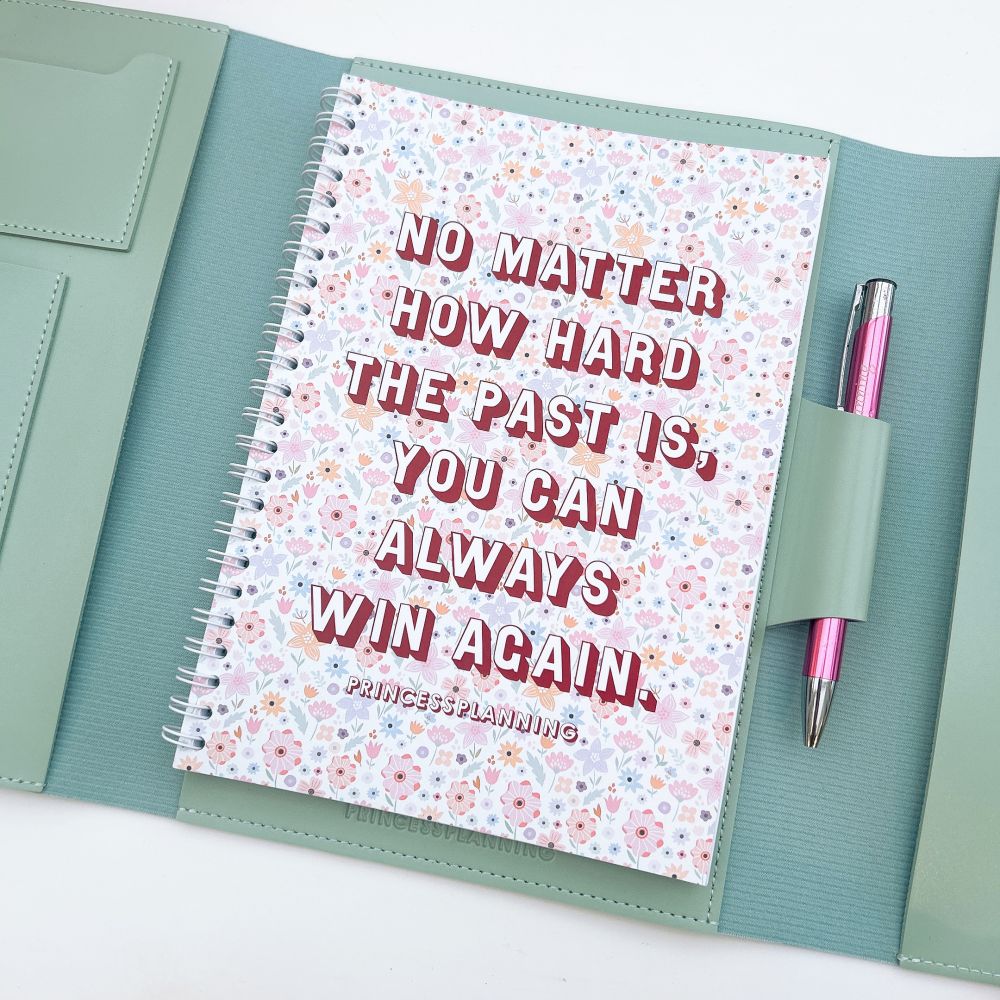 NO MATTER
HOW HARD
THE PAST IS,
YOU CAN
ALWAYS
WIN AGAIN.
PRINCESSPLANNING
PRINCESSPLANNING